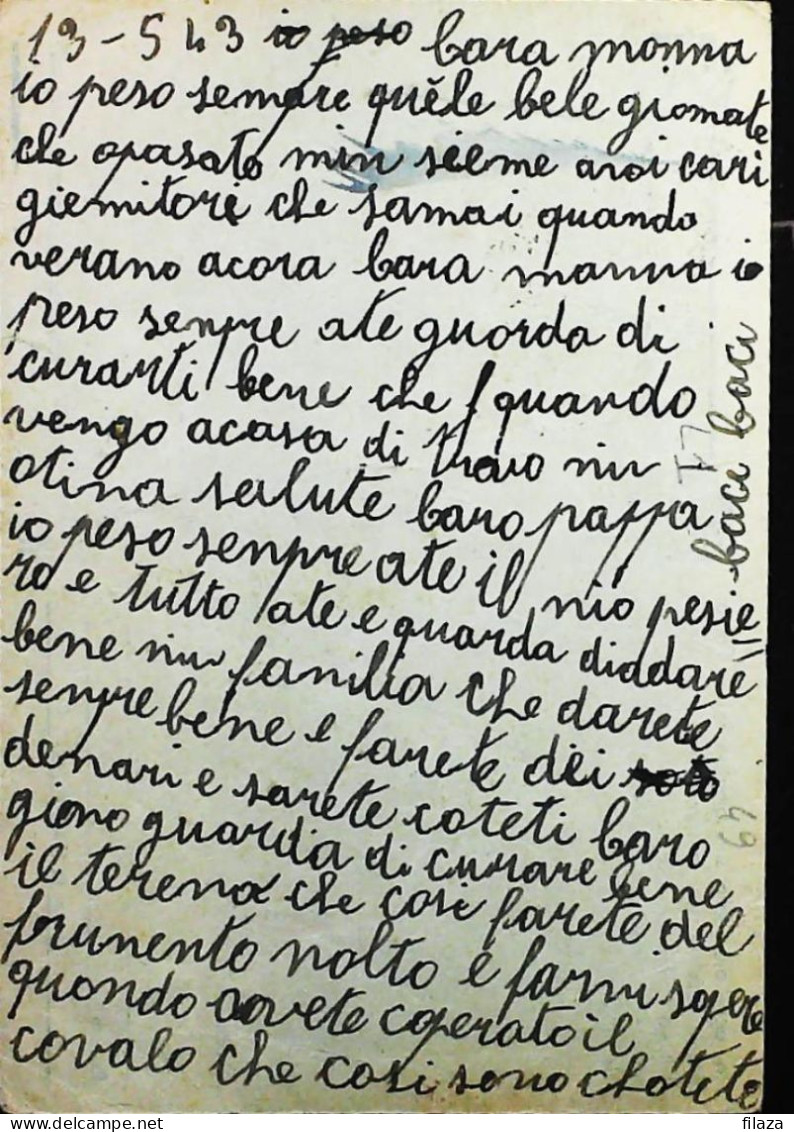 13-5 43 io peso bara monna
io peso sempre quèle bele giornate
che opasato min sieme avoi cari
giemitori che samai quando
verano acora bara manna io
peso senpre ate guorda di
curarti bene che quando
vengo acasa di travo nin
otina salute baro pappa
io peso senpre ate il nio pesie=
ro e tutto ate e guarda diadare
bene nin fanilia che darete
senpre bene e farete dei soto
denari e sarete coteti baro
giono guarda di curare bene
il tereno che cosi farete del
frunento nolto e farni sapere
quondo avete coperato il
covalo che cosi sono chotete
baci baci baci
49